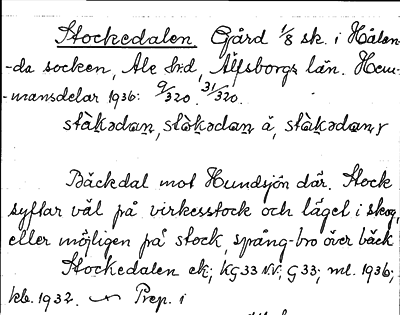 Stockedalen. Gård 1/8 sk. i Hålan-
-da socken, Ale hd, Älfsborgs län. Hem-
-mansdelar 1936: 9/320. 31/320.
ståkədan, ståkədan å, ståkədanr
Bäckdal mot Hundsjön där. Stock
syftar väl på virkesstock och läget i skog,
eller möjligen på stock, spång-bro över bäck
Stockedalen ek; KG33 NV; G33; ml. 1936;
kb. 1932. Prep. i